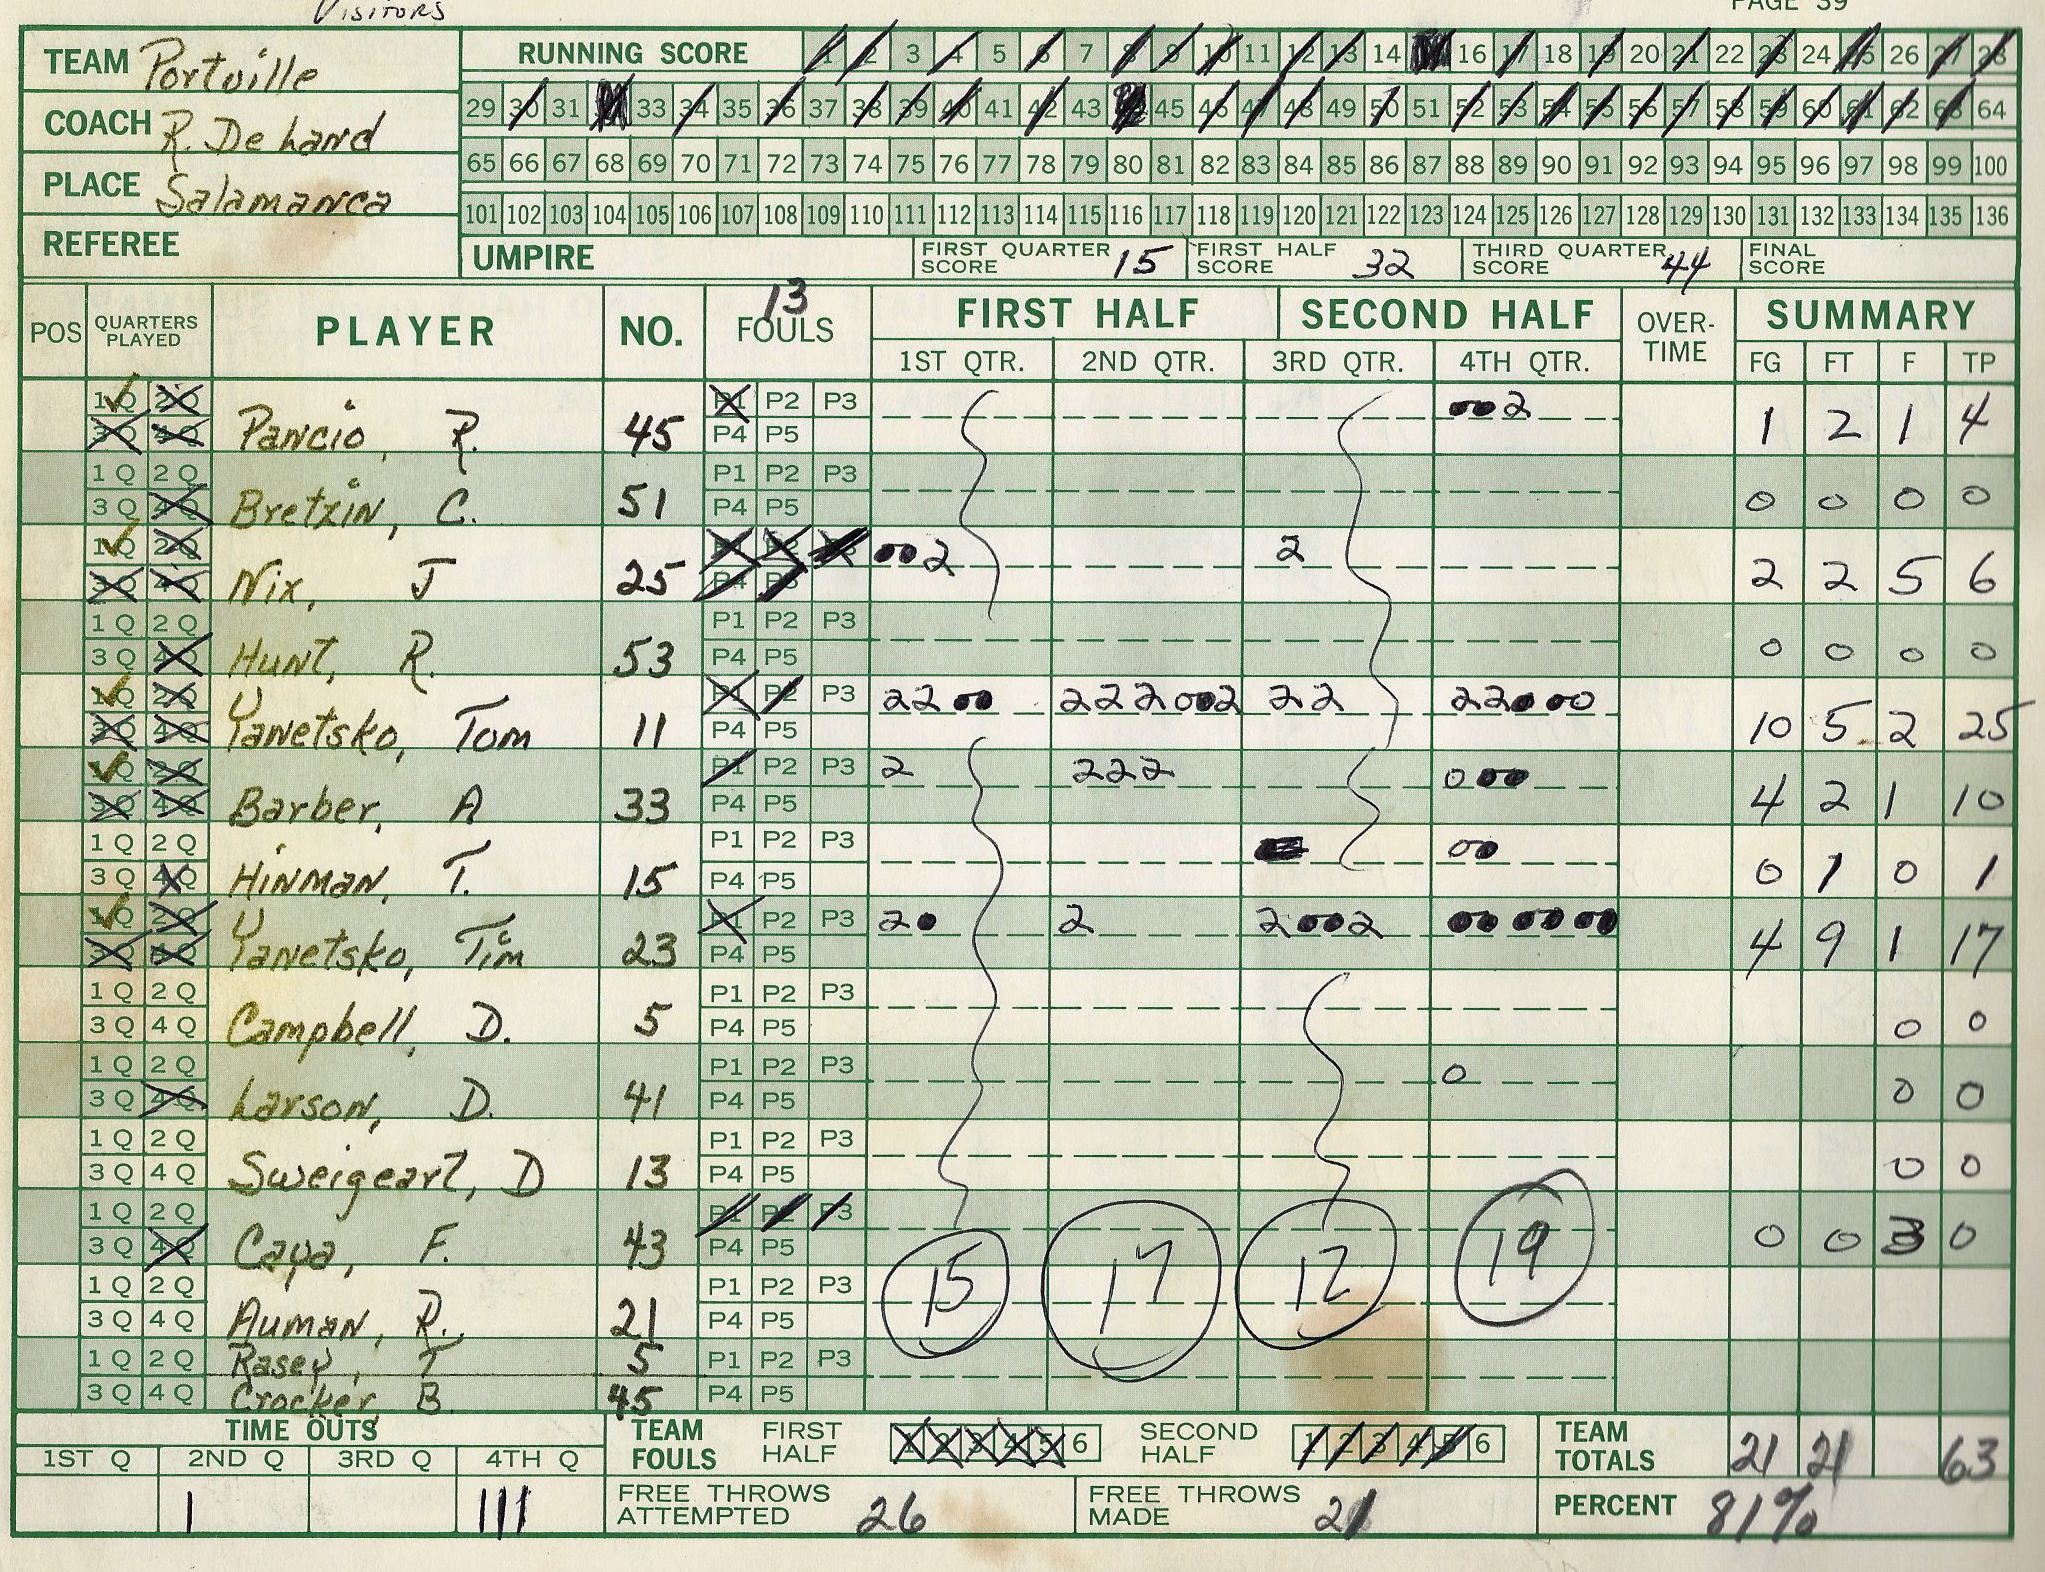 Visitors
PAGE 39
TEAM Portville
RUNNING SCORE 1 2 3 4 5 6 7 8 9 10 11 12 13 14 15 16 17 18 19 20 21 22 23 24 25 26 27 28
29 30 31 32 33 34 35 36 37 38 39 40 41 42 43 44 45 46 47 48 49 50 51 52 53 54 55 56 57 58 59 60 61 62 63 64
COACH R. DeLand
65 66 67 68 69 70 71 72 73 74 75 76 77 78 79 80 81 82 83 84 85 86 87 88 89 90 91 92 93 94 95 96 97 98 99 100
PLACE Salamanca
101 102 103 104 105 106 107 108 109 110 111 112 113 114 115 116 117 118 119 120 121 122 123 124 125 126 127 128 129 130 131 132 133 134 135 136
REFEREE
UMPIRE
FIRST QUARTER SCORE 15
FIRST HALF SCORE 32
THIRD QUARTER SCORE 44
FINAL SCORE
POS QUARTERS PLAYED PLAYER NO. 13 FOULS FIRST HALF SECOND HALF OVER-TIME SUMMARY
1ST QTR. 2ND QTR. 3RD QTR. 4TH QTR. FG FT F TP
1Q 2Q P1 P2 P3 2
3Q 4Q Pancio, R. 45 P4 P5 1 2 1 4
1Q 2Q P1 P2 P3
3Q 4Q Bretzin, C. 51 P4 P5 0 0 0 0
1Q 2Q P1 P2 P3 2 2
3Q 4Q Nix, J 25 P4 P5 2 2 5 6
1Q 2Q P1 P2 P3
3Q 4Q Hunt, R. 53 P4 P5 0 0 0 0
1Q 2Q P1 P2 P3 22 222 2 22 22
3Q 4Q Yanetsko, Tom 11 P4 P5 10 5 2 25
1Q 2Q P1 P2 P3 2 222 0
3Q 4Q Barber, A 33 P4 P5 4 2 1 10
1Q 2Q P1 P2 P3 0
3Q 4Q Hinman, T. 15 P4 P5 0 1 0 1
1Q 2Q P1 P2 P3 2 2 2 2
3Q 4Q Yanetsko, Tim 23 P4 P5 4 9 1 17
1Q 2Q P1 P2 P3
3Q 4Q Campbell, D. 5 P4 P5 0 0
1Q 2Q P1 P2 P3 0
3Q 4Q Larson, D. 41 P4 P5 0 0
1Q 2Q P1 P2 P3
3Q 4Q Sweigeart, D 13 P4 P5 0 0
1Q 2Q P1 P2 P3
3Q 4Q Capa, F. 43 P4 P5 15 17 12 19 0 0 3 0
1Q 2Q P1 P2 P3
3Q 4Q Auman, R. 21 P4 P5
1Q 2Q Rasey, T 5 P1 P2 P3
3Q 4Q Crocker, B. 45 P4 P5
TIME OUTS
1ST Q 2ND Q 3RD Q 4TH Q
1 III
TEAM FOULS FIRST HALF 1 2 3 4 5 6 SECOND HALF 1 2 3 4 5 6
TEAM TOTALS 21 21 63
FREE THROWS ATTEMPTED 26
FREE THROWS MADE 21
PERCENT 81%